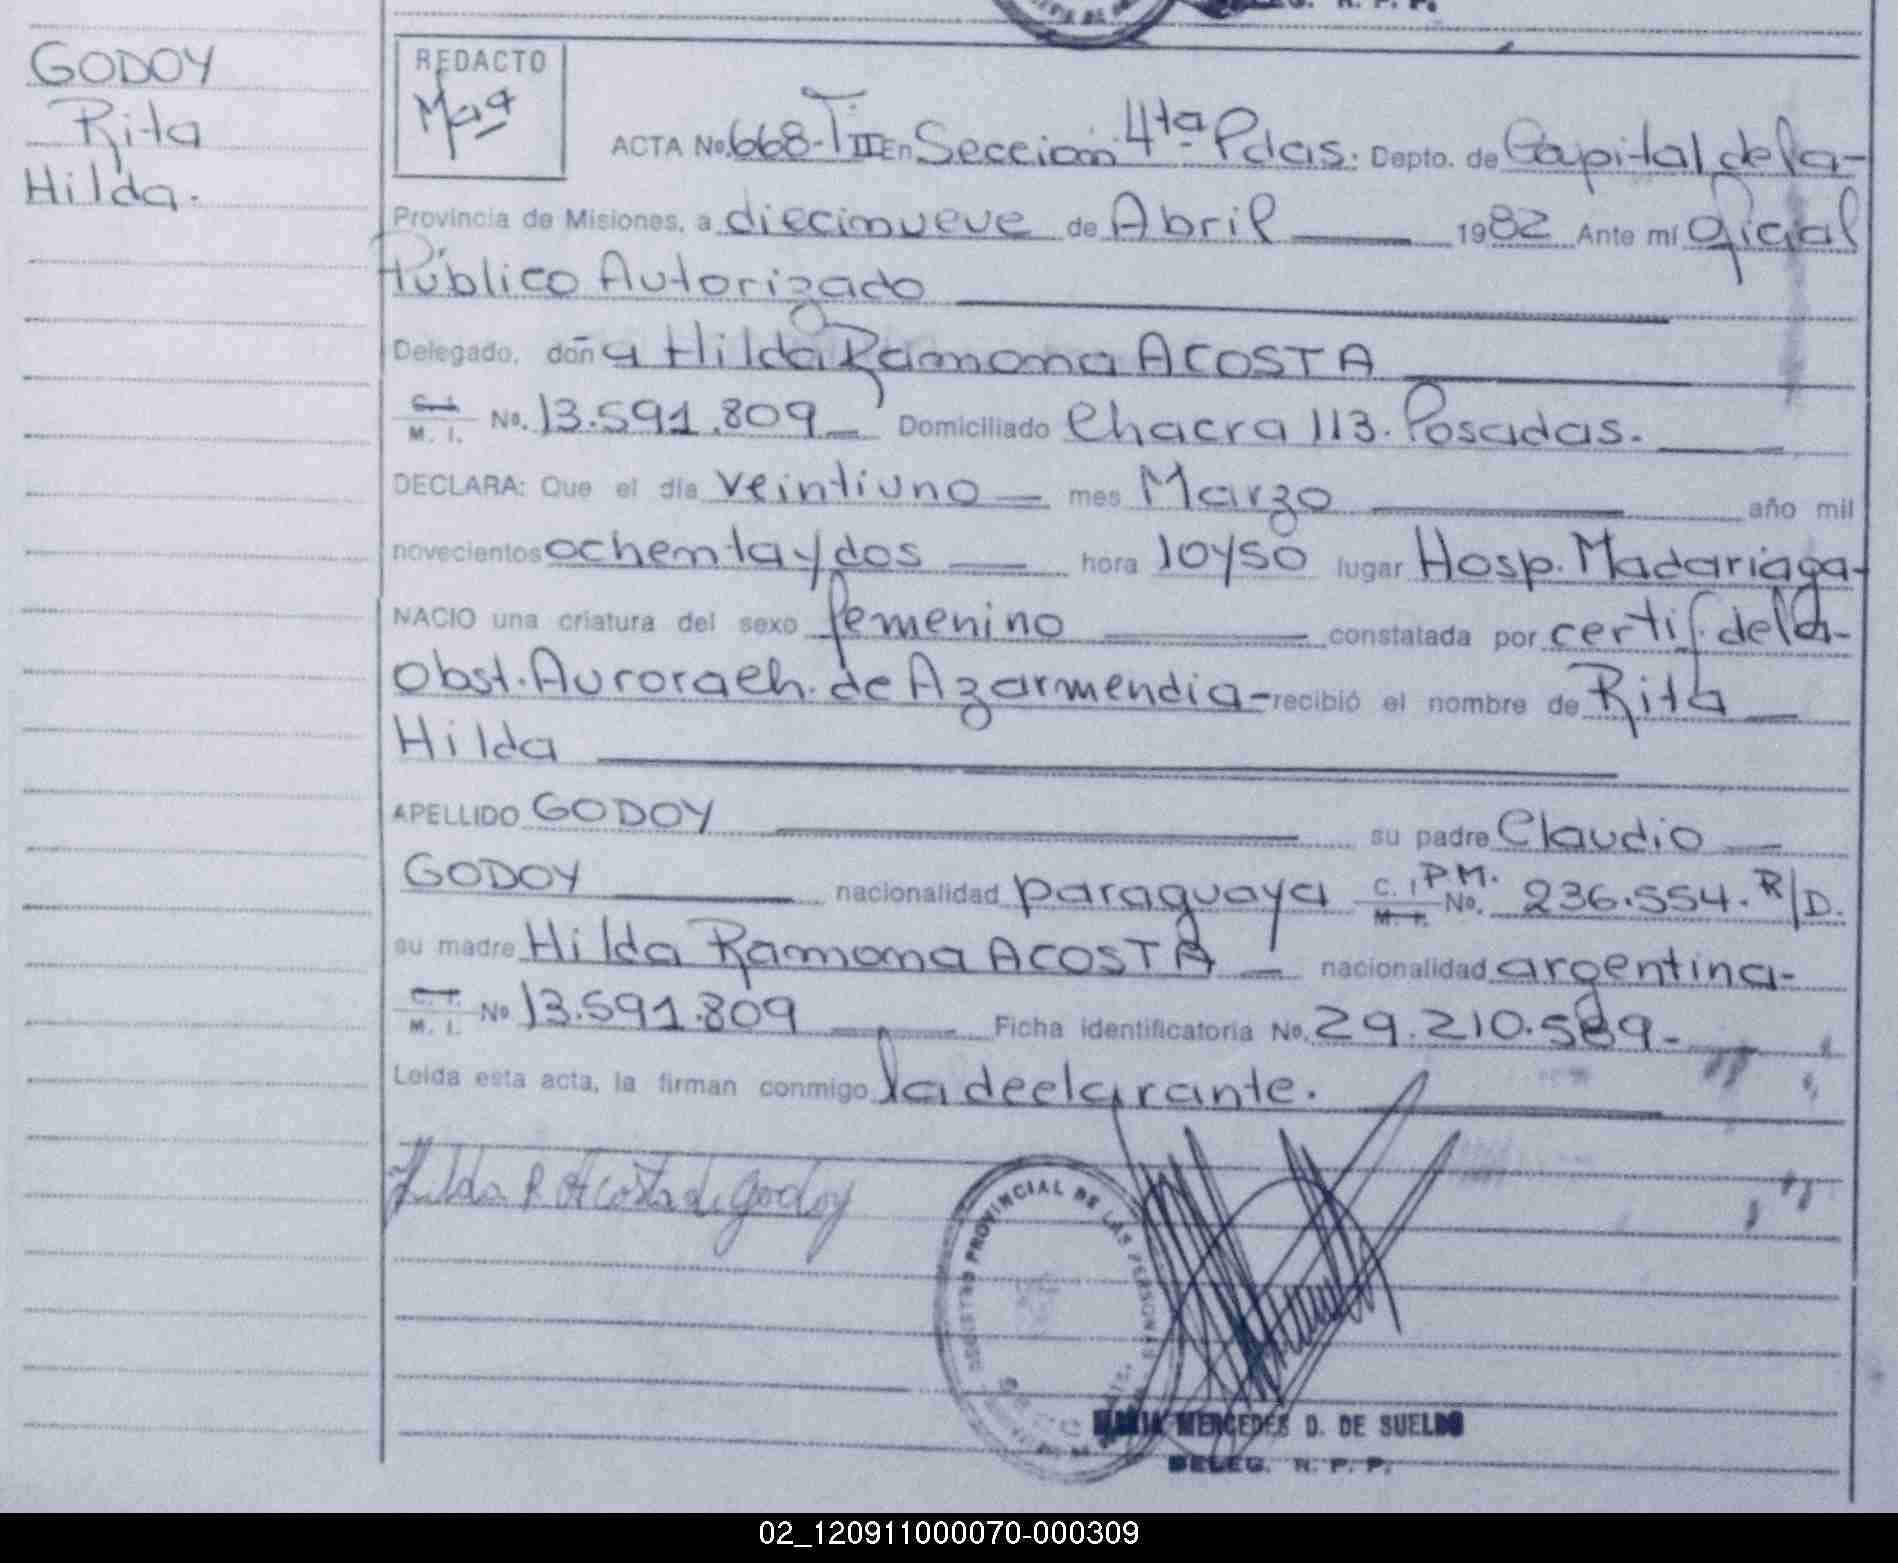 GODOY
Rita
Hilda.
REDACTO
ACTA No. 668-T II En Seccion 4ta Pdas. Depto. de Capital de la-
Provincia de Misiones, a diecinueve de Abril 1982 Ante mí Oficial
Público Autorizado
Delegado, doña Hilda Ramona ACOSTA
C. I. M. I. No. 13.591.809 Domiciliado Chacra 113. Posadas.
DECLARA: Que el día veintiuno mes Marzo año mil
novecientos ochenta y dos hora 10 y 50 lugar Hosp. Madariaga-
NACIO una criatura del sexo femenino constatada por certif. de la-
Obst. Aurora Ch. de Azarmendia- recibió el nombre de Rita
Hilda
APELLIDO GODOY su padre Claudio
GODOY nacionalidad paraguaya C. I. P.M. M. I. No. 236.554. R/D.
su madre Hilda Ramona ACOSTA nacionalidad argentina-
C. I. M. I. No 13.591.809 Ficha identificatoria No. 29.210.589-
Leída esta acta, la firman conmigo la declarante.
Hilda R Acosta de Godoy
REGISTRO PROVINCIAL DE LAS PERSONAS
MARIA MERCEDES D. DE SUELDO
DELEG. N. P. P.
02_120911000070-000309